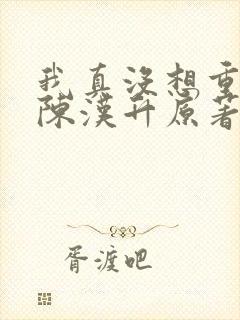 我真没想重
陈汉升原著
胥渡吧